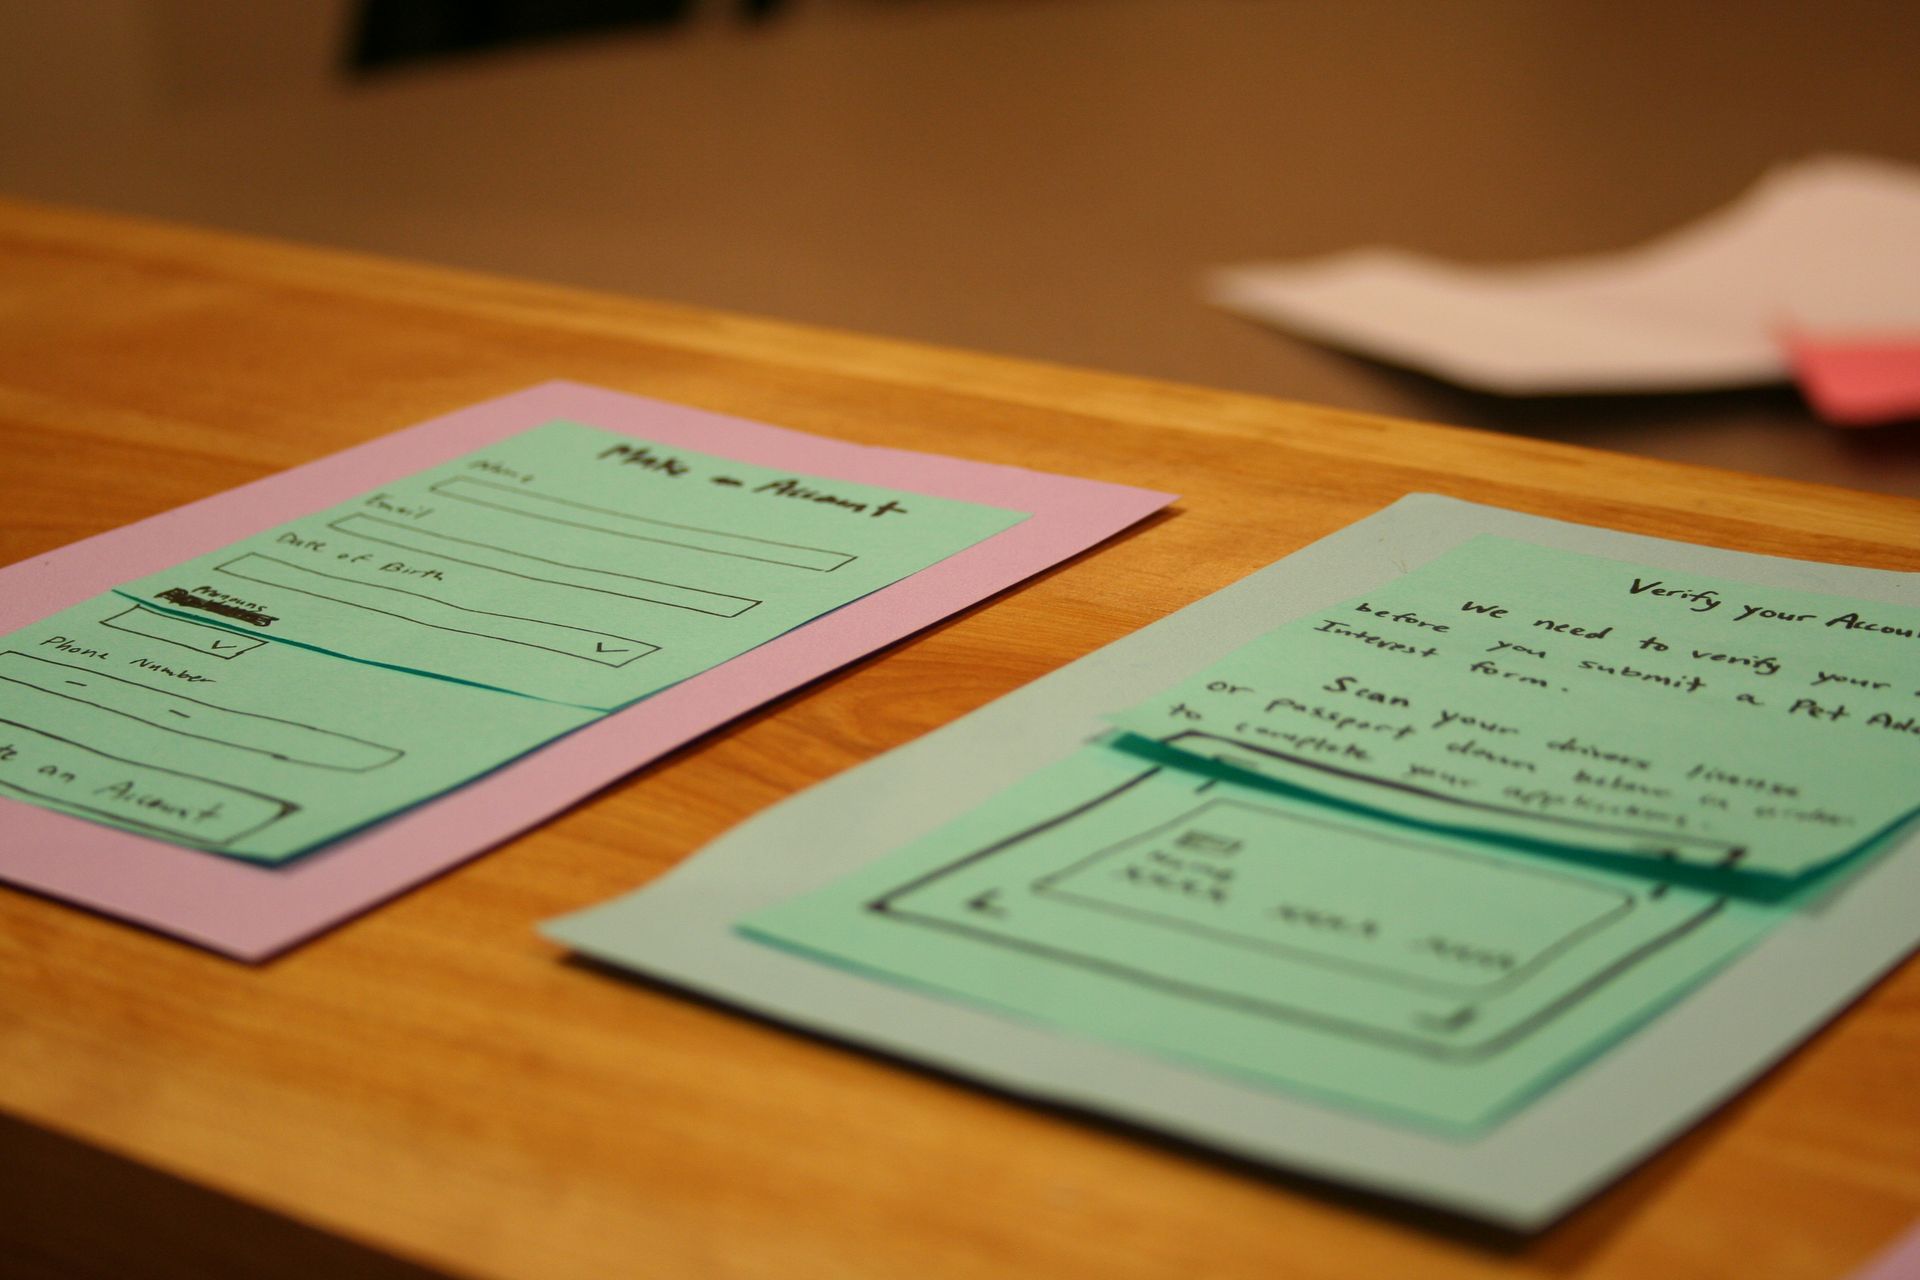 Make an Account
Name
Email
Date of Birth
Pronouns
Phone Number
an Account
Verify your Accou
We need to verify your
before you submit a Pet Ado
Interest form.
Scan your drivers license
or passport down below in order
to complete your application.